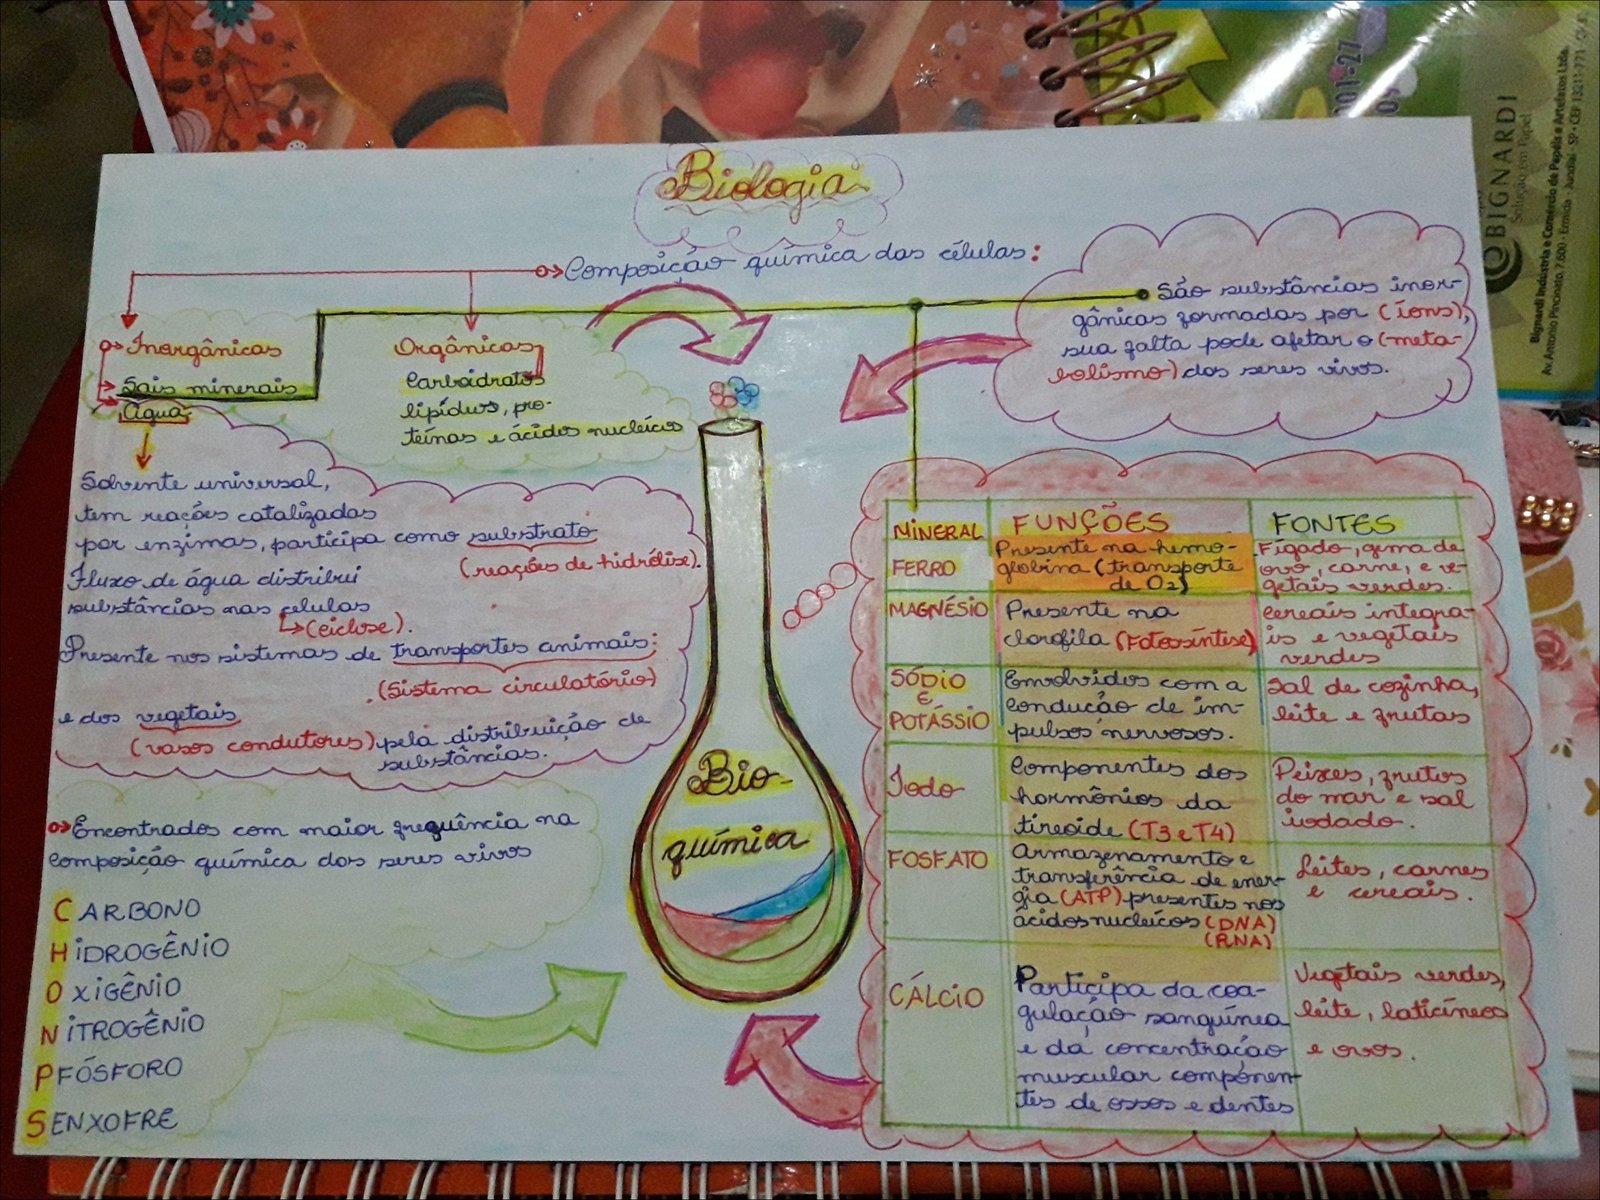 Biologia
Composição química das células:
Inorgânicas
Sais minerais
Água
Orgânicas
Carboidratos
lipídios, pro-
teínas e ácidos nucleícos
São substâncias inor-
gânicas formadas por (íons),
sua falta pode afetar o (meta-
bolismo) dos seres vivos.
Solvente universal,
tem reações catalizadas
por enzimas, participa como substrato
(reações de hidrólise).
Fluxo de água distribui
substâncias nas células
(ciclose).
Presente nos sistemas de transportes animais:
(Sistema circulatório)
e dos vegetais
(vasos condutores) pela distribuição de
substâncias.
Encontrados com maior frequência na
composição química dos seres vivos
CARBONO
HIDROGÊNIO
OXIGÊNIO
NITROGÊNIO
PFÓSFORO
SENXOFRE
Bio-
química
MINERAL FUNÇÕES FONTES
FERRO
Presente na hemo-
globina (transporte
de O2)
Fígado, gema de
ovo, carne, e ve-
getais verdes.
MAGNÉSIO
Presente na
clorofila (Fotossíntise)
cereais integra-
is e vegetais
verdes
SÓDIO
E
POTÁSSIO
Envolvidos com a
condução de im-
pulsos nervosos.
Sal de cozinha,
leite e frutas
Iodo
Componentes dos
hormônios da
tireoide (T3 e T4)
Peixes, frutos
do mar e sal
iodado.
FOSFATO
Armazenamento e
transferência de ener-
gia (ATP) presentes nos
ácidos nucleícos (DNA)
(RNA)
Leites, carnes
e cereais.
CÁLCIO
Participa da coa-
gulação sanguínea
e da concentração
muscular componen-
tes de ossos e dentes
Vegetais verdes,
leite, laticíneos
e ovos.
BIGNARDI
Soluções em Papel
Bignardi Indústria e Comércio de Papéis e Artefatos Ltda.